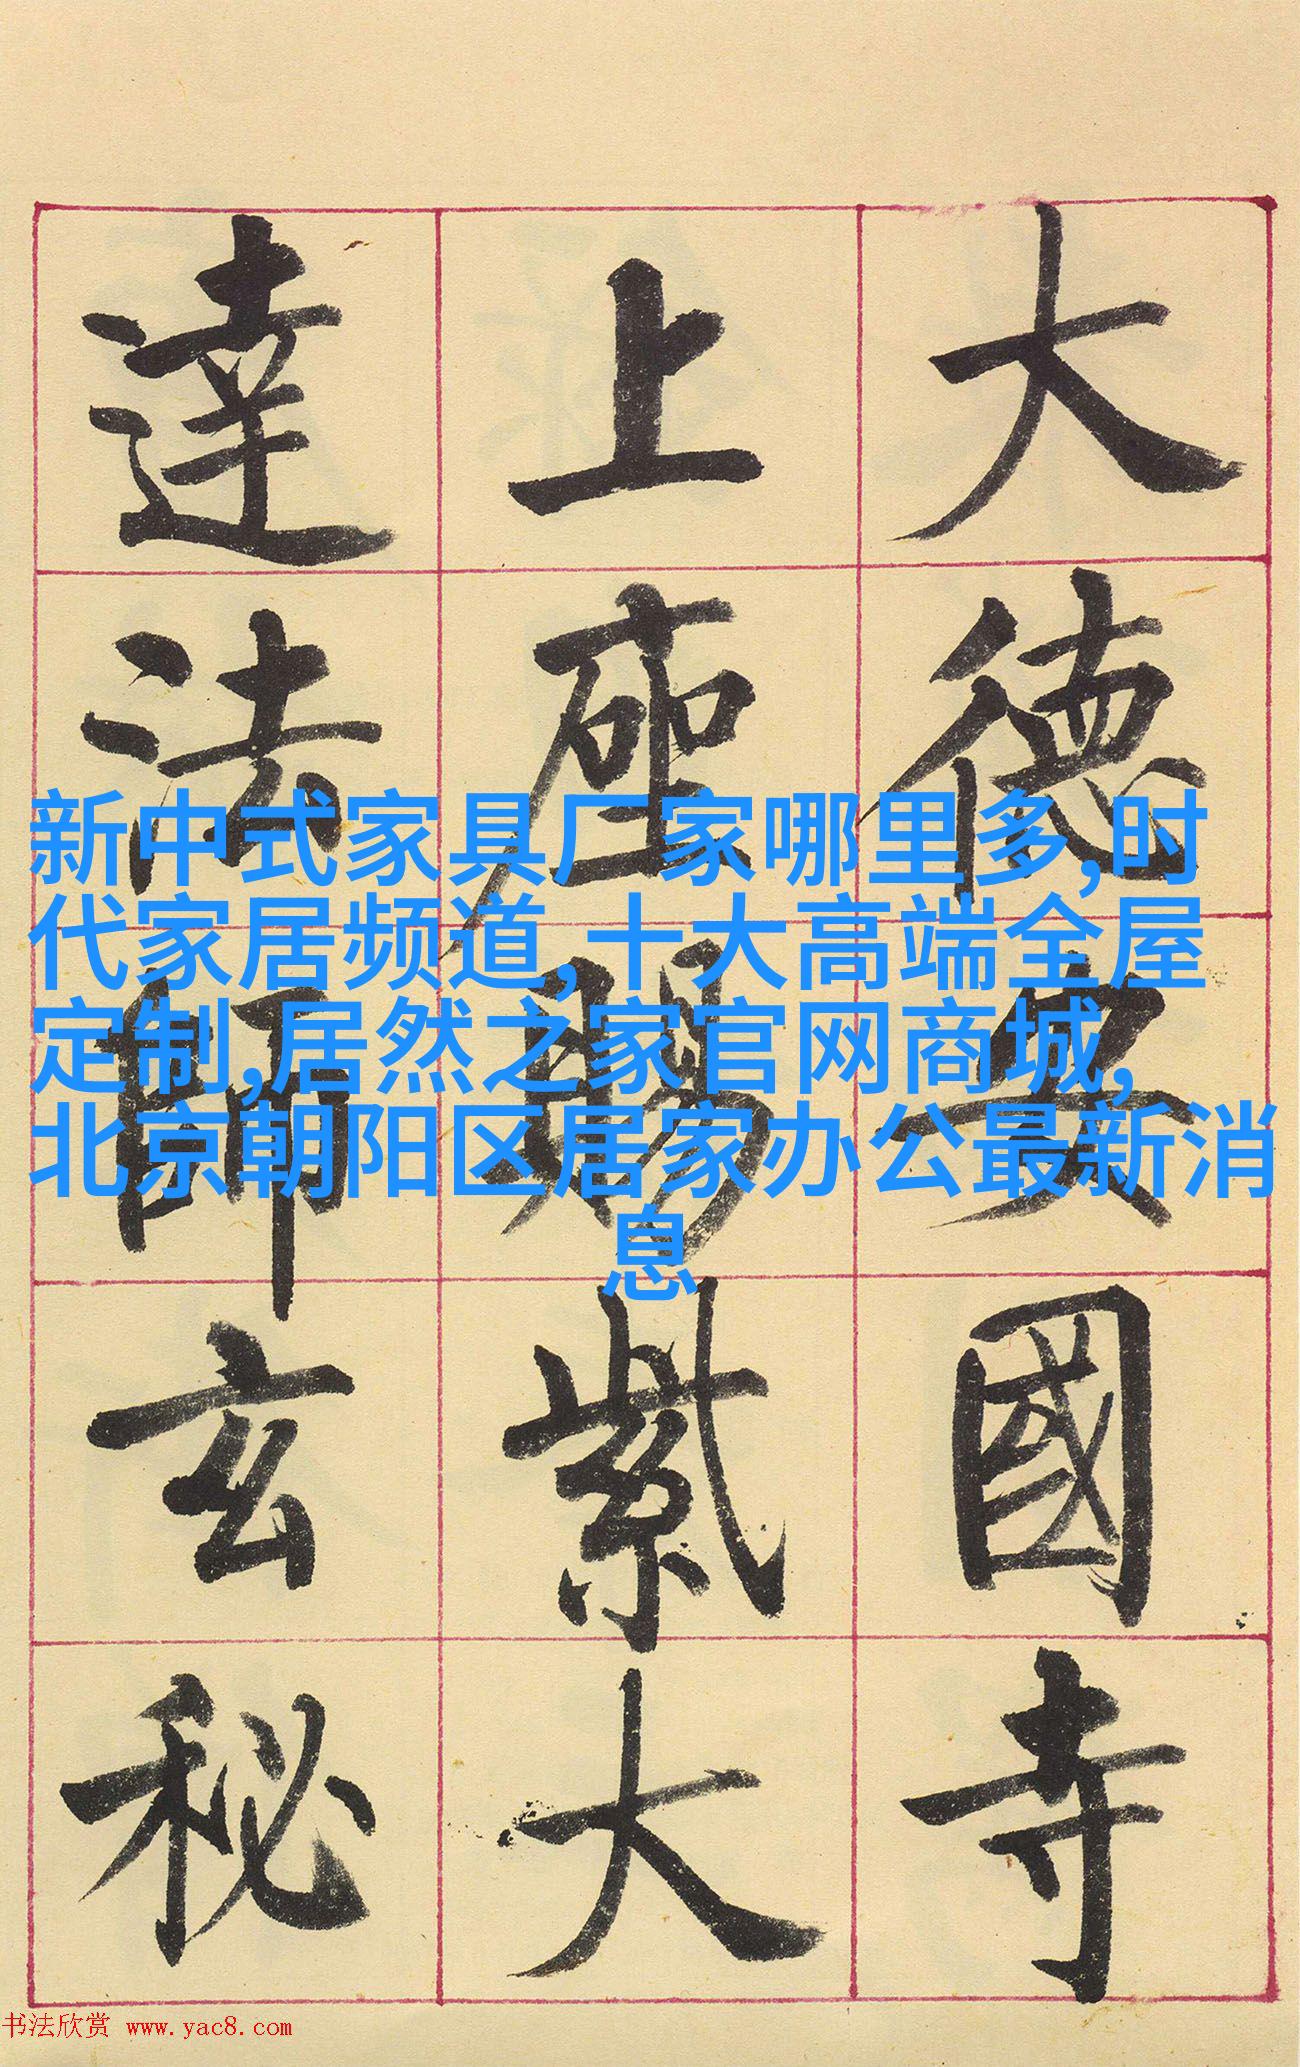 大德安國寺
上座賜紫大
達法師玄秘
新中式家具厂家哪里多,时
代家居频道,十大高端全屋
定制,居然之家官网商城,
北京朝阳区居家办公最新消
息
书法欣赏 www.yac8.com